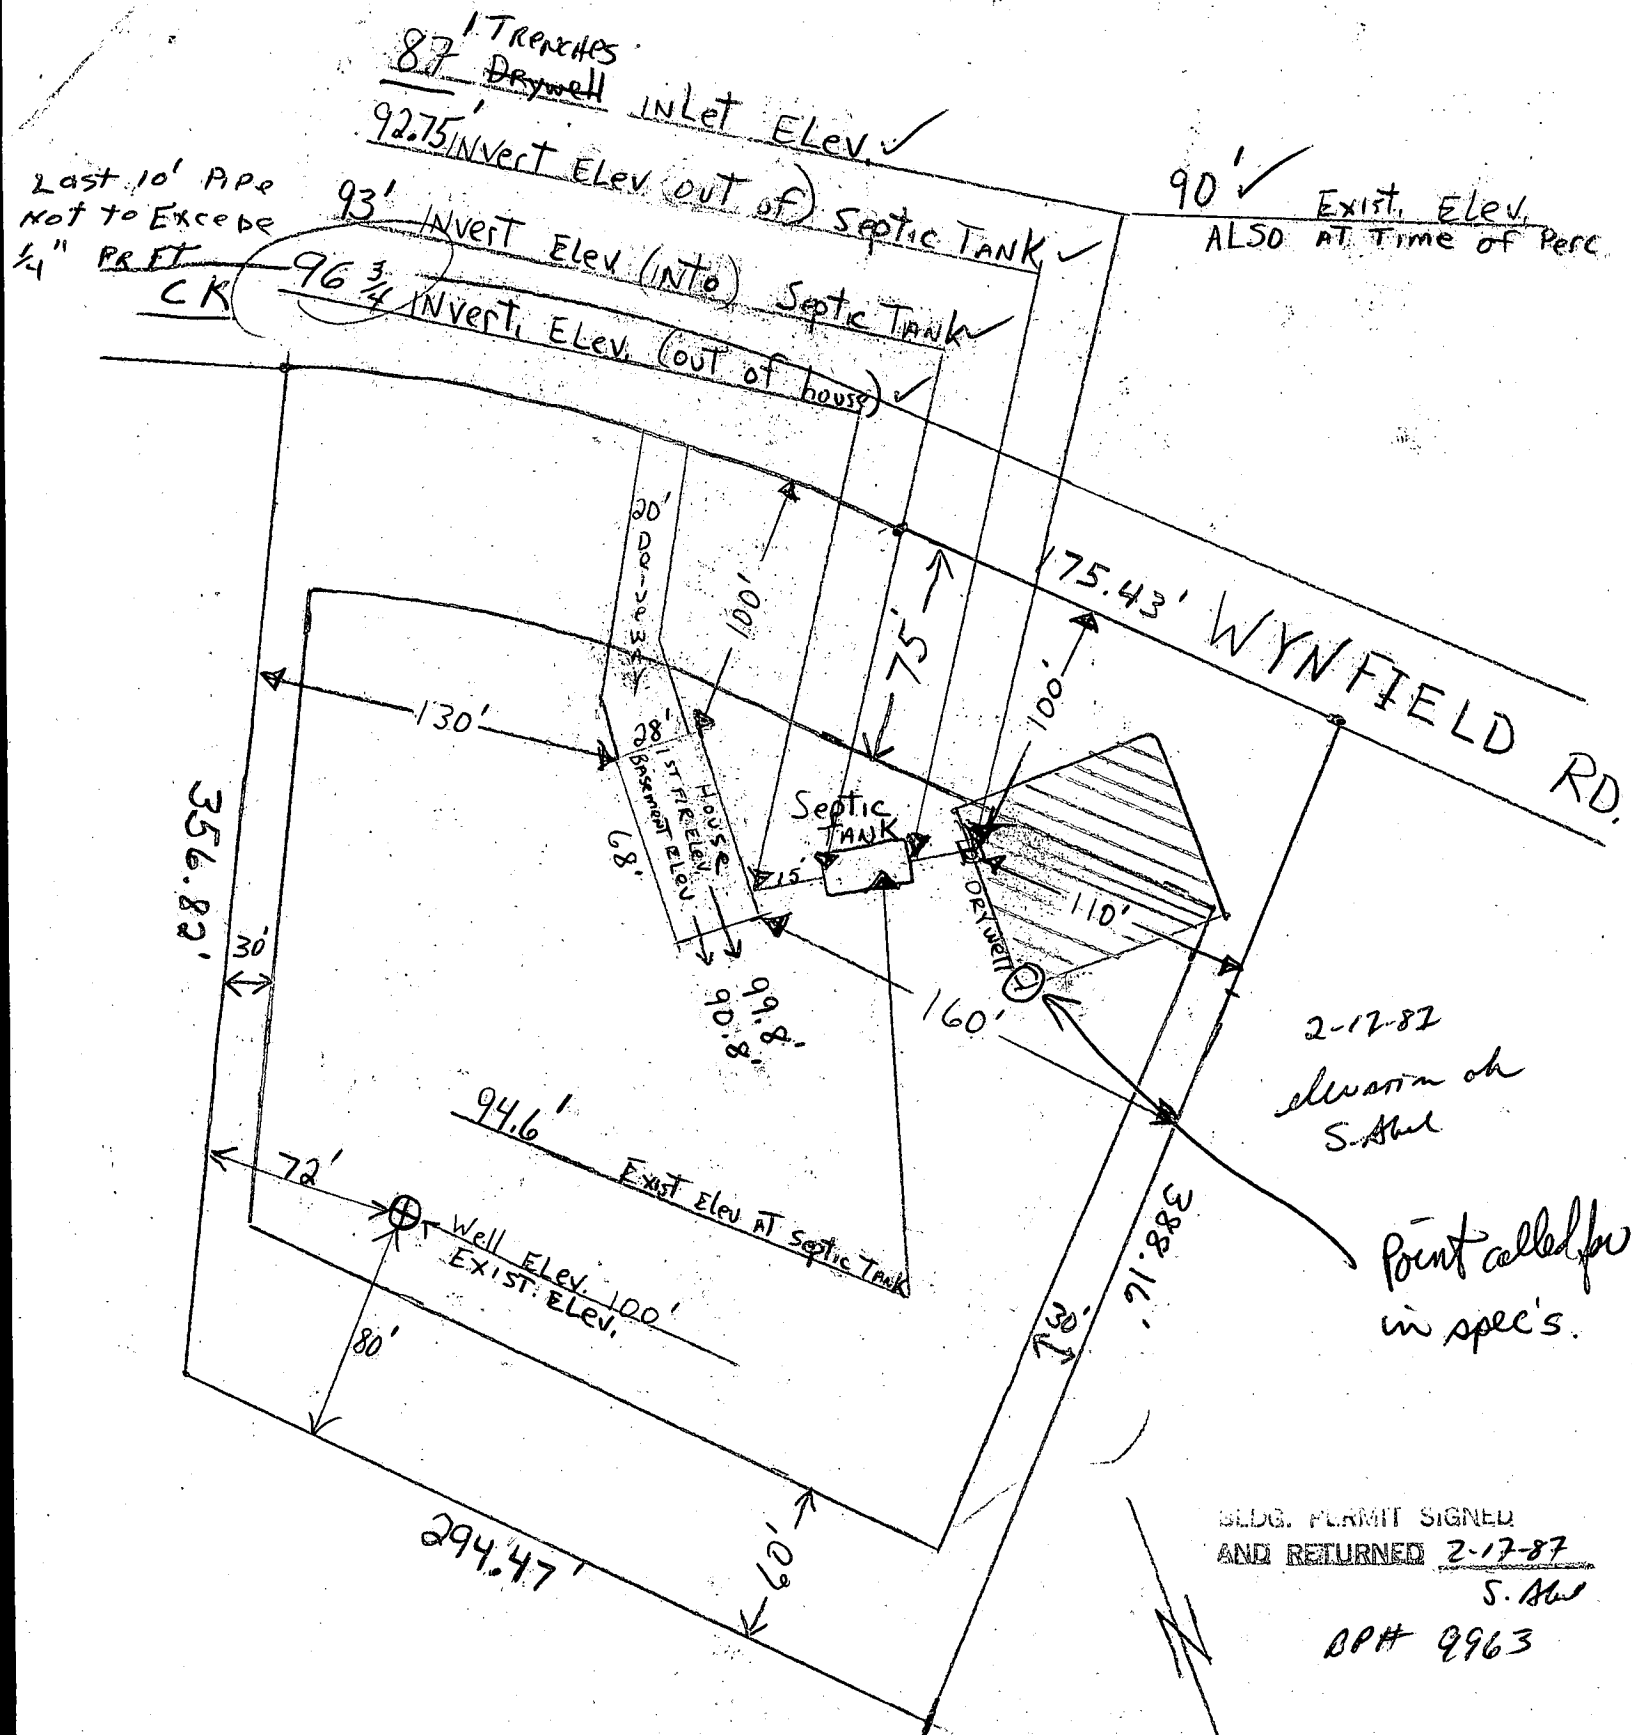 87' Trenches
Drywell Inlet Elev. ✓
92.75' Invert Elev (out of) Septic Tank ✓
93' Invert Elev (Into) Septic Tank ✓
96 3/4 Invert. Elev. (out of house) ✓
Last 10' Pipe
Not to Excede
1/4" PR FT
CK
90' ✓ Exist. Elev.
ALSO AT Time of Perc
20' Driveway
100'
75'
100'
175.43' WYNFIELD RD.
130'
28'
House
1st Flr Elev. 99.8'
Basement Elev. 90.8'
68'
15'
Septic
Tank
Drywell
110'
160'
356.82'
30'
94.6' Exist Elev AT Septic Tank
72'
Well Elev.
Exist. Elev. 100'
80'
388.16'
30'
60'
294.47'
2-17-87
elevation ok
Point called for
in spec's.
BLDG. PERMIT SIGNED
AND RETURNED 2-17-87
BP# 9963